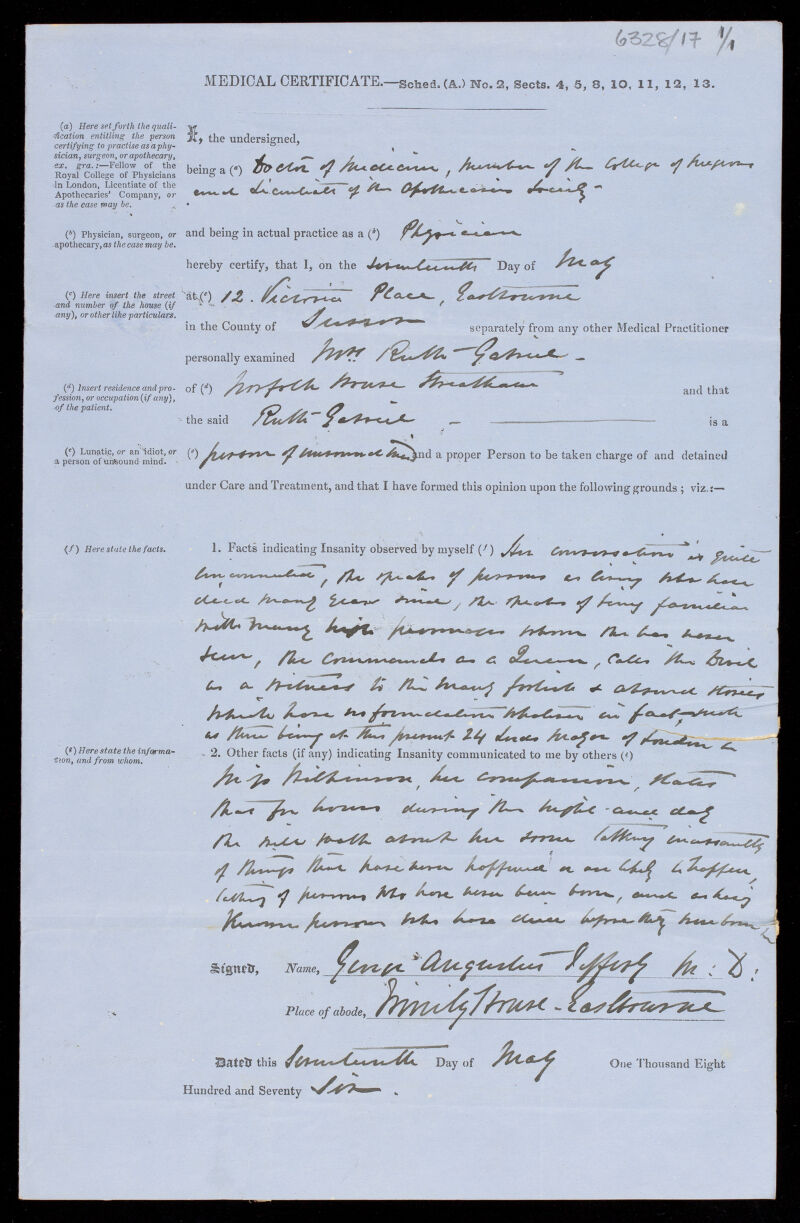 6328/17 1/1
MEDICAL CERTIFICATE.—Sched. (A.) No. 2, Sects. 4, 5, 8, 10, 11, 12, 13.
(a) Here set forth the quali-
fication entitling the person
certifying to practise as a phy-
sician, surgeon, or apothecary,
ex. gra.:—Fellow of the
Royal College of Physicians
in London, Licentiate of the
Apothecaries' Company, or
as the case may be.
I, the undersigned,
being a (a) Doctor of Medicine, Member of the College of Surgeons
and Licentiate of the Apothecaries Society -
(b) Physician, surgeon, or
apothecary, as the case may be.
and being in actual practice as a (b) Physician
hereby certify, that I, on the Seventeenth Day of May
(c) Here insert the street
and number of the house (if
any), or other like particulars.
at (c) 12. Victoria Place, Eastbourne
in the County of Sussex separately from any other Medical Practitioner
personally examined Mrs Ruth Gabriel -
(d) Insert residence and pro-
fession, or occupation (if any),
of the patient.
of (d) Norfolk House Streatham and that
the said Ruth Gabriel - is a
(e) Lunatic, or an idiot, or
a person of unsound mind.
(e) person of unsound mind and a proper Person to be taken charge of and detained
under Care and Treatment, and that I have formed this opinion upon the following grounds ; viz.:—
(f) Here state the facts.
1. Facts indicating Insanity observed by myself (f) Her conversation is quite
unconnected, she speaks of persons as living who have
died many years since, she speaks of being familiar
with many high personages whom she has never
seen, she commands as a Queen, calls the Devil
as a witness to the many foolish & absurd stories
which have no foundation whatever in fact, such
as there being at this present 24 Lords Mayor of London &c
(g) Here state the informa-
tion, and from whom.
2. Other facts (if any) indicating Insanity communicated to me by others (g)
Miss Wilkinson, her companion, states
that for hours during the night and day
she will walk about her room talking incessantly
of things that have never happened or are likely to happen,
talking of persons who have never been born, and asking
persons who have died before they were born
Signed, Name, George Augustus Jeffery M: D:
Place of abode, Trinity House - Eastbourne
Dated this Seventeenth Day of May One Thousand Eight
Hundred and Seventy Six .